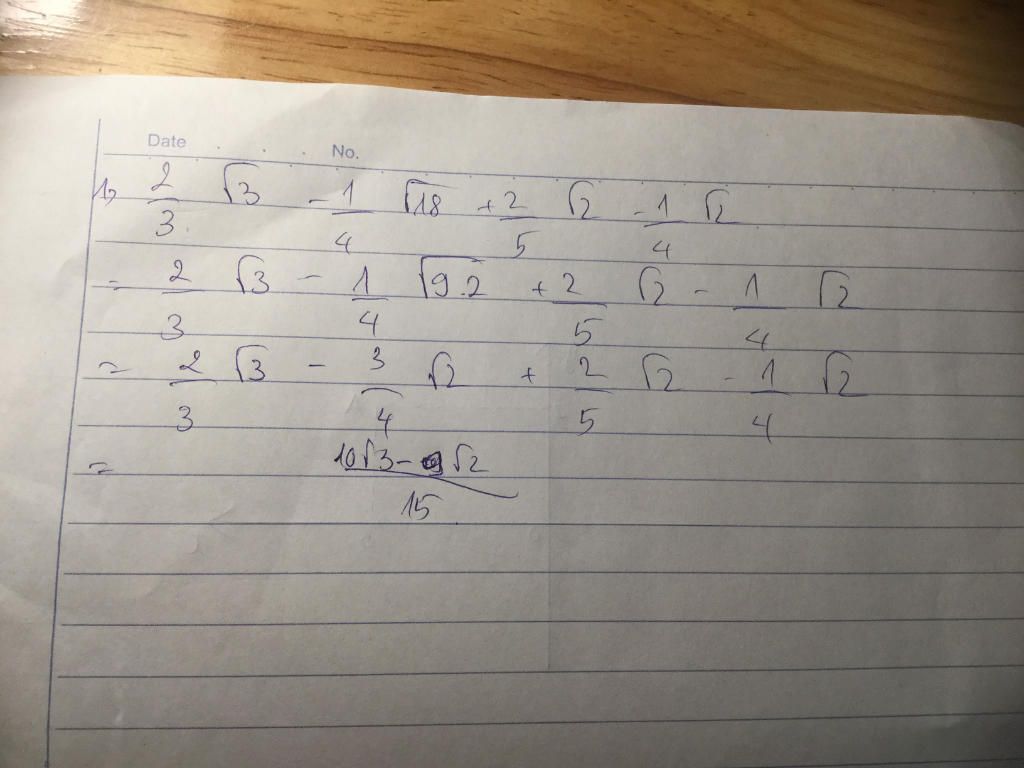 Date . . . No.
1, 2/3 √3 - 1/4 √18 + 2/5 √2 - 1/4 √2
= 2/3 √3 - 1/4 √9.2 + 2/5 √2 - 1/4 √2
= 2/3 √3 - 3/4 √2 + 2/5 √2 - 1/4 √2
= 10√3 - 9√2 / 15